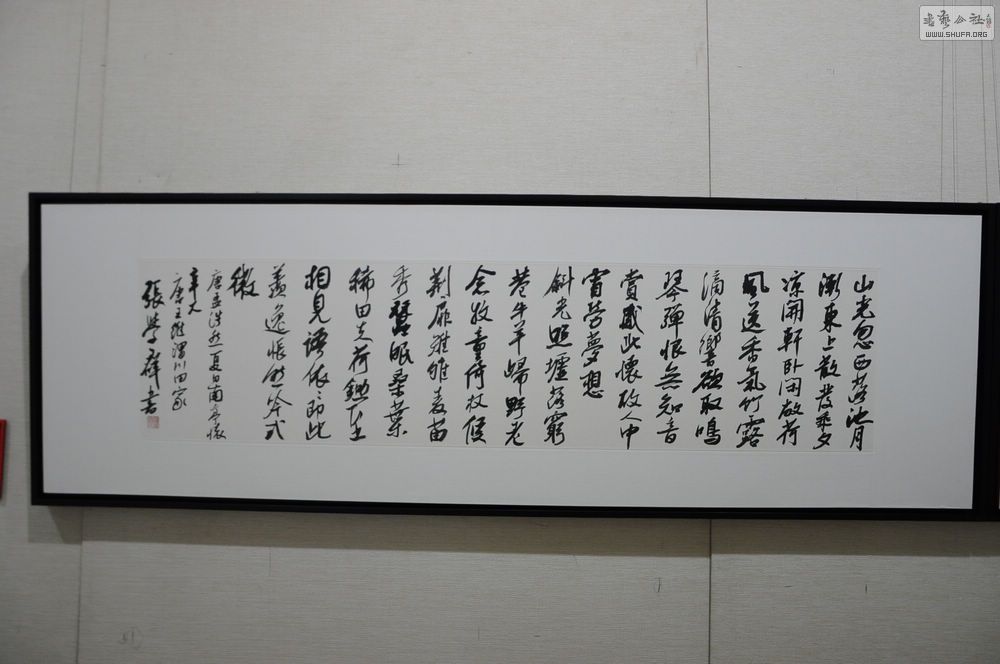 山光忽西落池月
漸東上散发乘夕
凉開軒卧闲敞荷
風送香氣竹露
滴清響欲取鳴
琴彈恨無知音
賞感此懷故人中
宵勞夢想
斜光照墟落窮
巷牛羊歸野老
念牧童倚杖候
荆扉雉雊麦苗
秀蠶眠桑葉
稀田夫荷鋤立
相見語依依即此
羡逸悵然吟式
微
唐孟浩然夏日南亭懷
辛大
唐王維渭川田家
張學群書
書藝公社
WWW.SHUFA.ORG